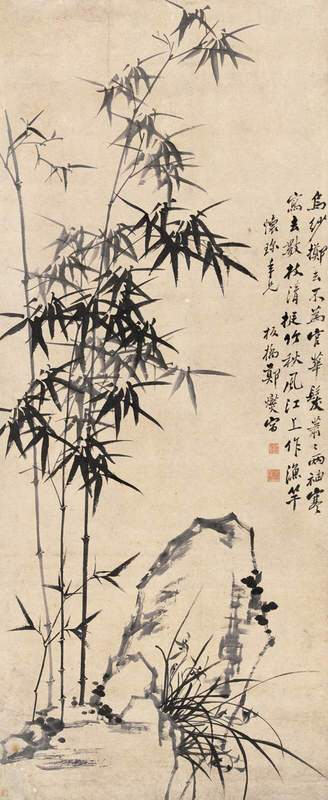 烏紗擲去不為官華髮蕭〻兩袖寒
寫去數枝清挺竹秋風江上作漁竿
懷年兄
板橋鄭燮寫